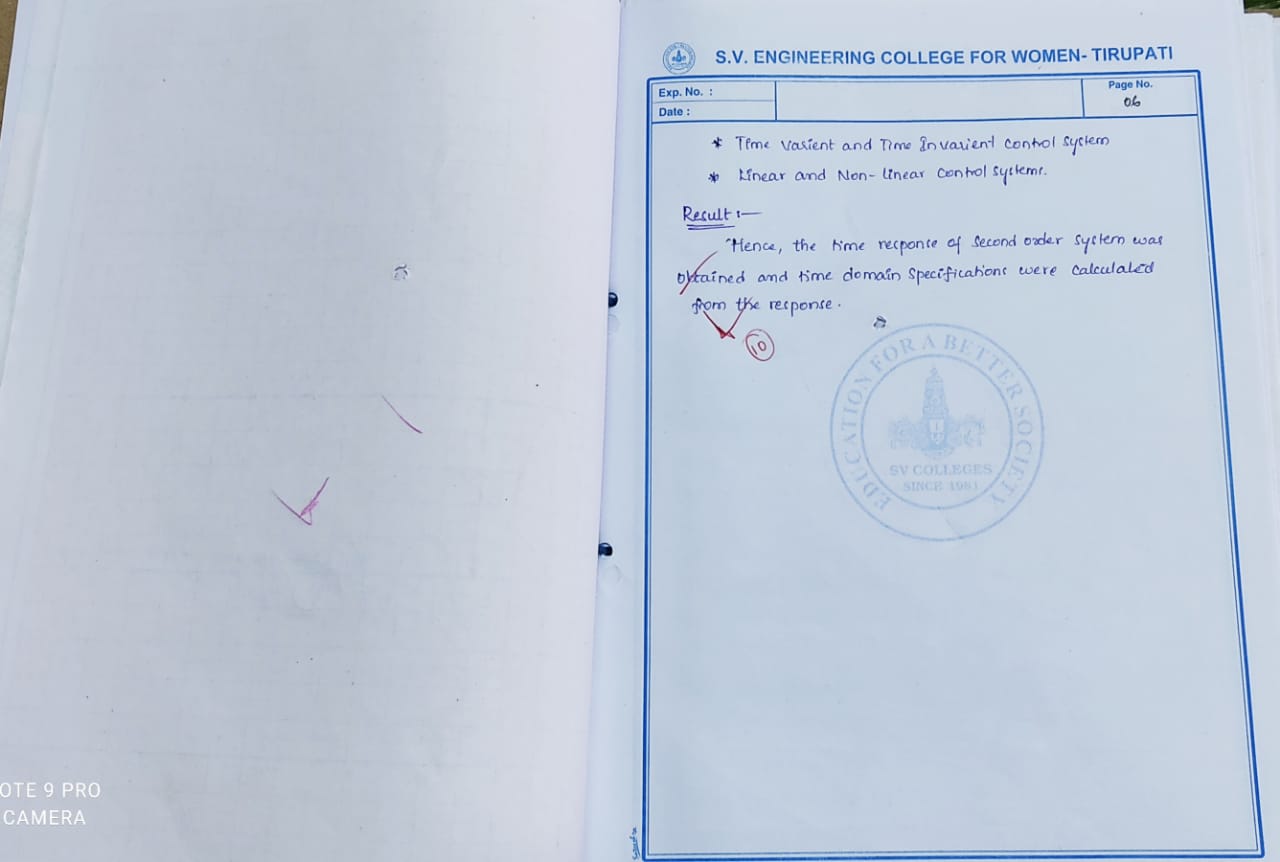 S.V. ENGINEERING COLLEGE FOR WOMEN- TIRUPATI
Exp. No. :
Date :
Page No.
06
* Time varient and Time Invarient control system
* Linear and Non-linear control systems.
Result :-
Hence, the time response of second order system was
obtained and time domain specifications were calculated
from the response.
10
EDUCATION FOR A BETTER SOCIETY
SV COLLEGES
SINCE 1981
OTE 9 PRO
CAMERA